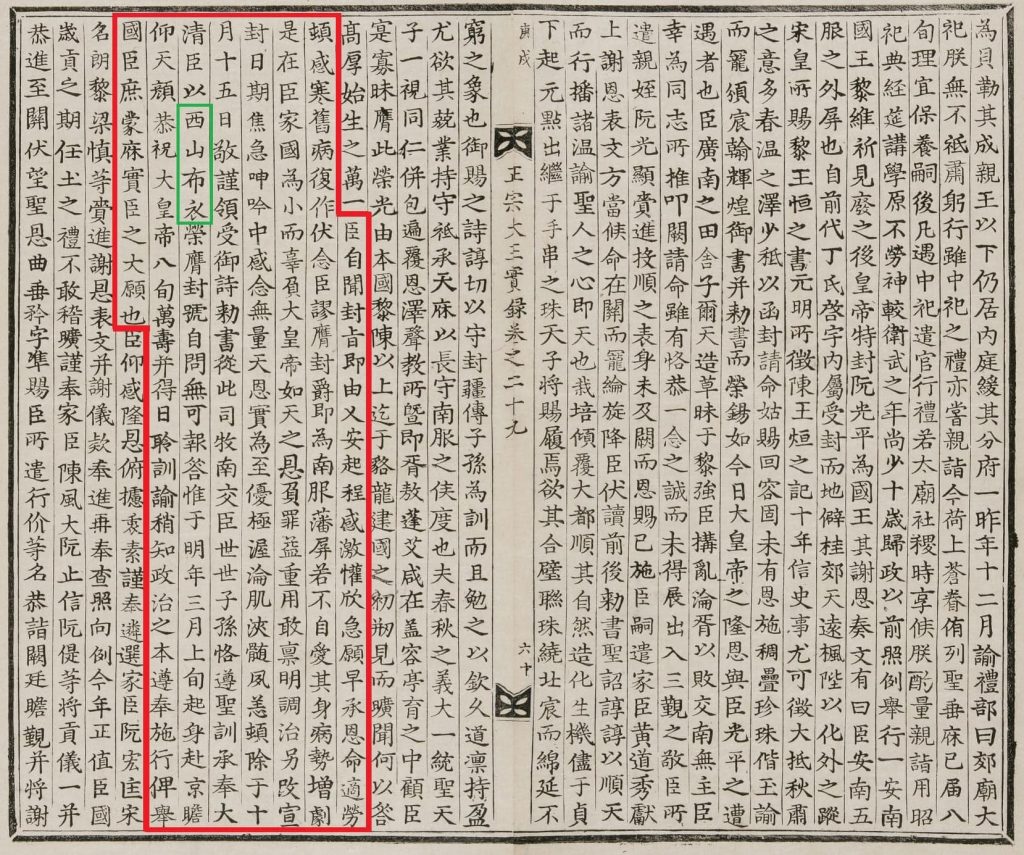 為貝勒其成親王以下仍居內庭緩其分府一昨年十二月諭禮部曰郊廟大
祀朕無不祗肅躬行雖中祀之禮亦當親詣今荷上蒼眷侑列聖垂庥已届八
旬理宜保養嗣後凡遇中祀遣官行禮若太廟社稷時享俟朕酌量親詣用昭
祀典經莚講學原不勞神較衛武之年尚少十歲歸政以前照例舉行一安南
國王黎維祈見廢之後皇帝特封阮光平為國王其謝恩奏文有曰臣安南五
服之外屏也自前代丁氏啓字內屬受封而地僻桂郊天遠楓陛以化外之蹤
宋皇所賜黎王恒之書元明所徵陳王烜之記十年信史事尤可徵大抵秋肅
之意多春溫之澤少秪以函封請命姑賜回容固未有恩施稠疊珍珠偕王諭
而寵須宸翰輝煌御書并勅書而榮錫如今日大皇帝之隆恩與臣光平之遭
遇者也臣廣南之田舍子爾天造草昧于黎強臣搆亂淪胥以敗交南無主臣
幸為同志所推叩關請命雖有恪恭一念之誠而未得展出入三覲之敬臣所
遣親姪阮光顯賫進投順之表身未及闕而恩賜已施臣嗣遣家臣黃道秀獻
上謝恩表文方當候命在關而寵綸旋降臣伏讀前後勅書聖詔諄諄以順天
而行播諸溫諭聖人之心即天也栽培傾覆大都順其自然造化生機儘于貞
下起元點出繼于手串之珠天子將賜履焉欲其合璧聯珠繞北宸而綿延不
正宗大王實錄卷之二十九
六十
庚戌
窮之象也御賜之詩諄切以守封疆傳子孫為訓而且勉之以欽久道凛持盈
尤欲其兢業持守祗承天庥以長守南服之侯度也夫春秋之義大一統聖天
子一視同仁併包遍覆恩澤聲教所曁即胥敖蓬艾咸在盖容亭育之中顧臣
寔寡昧膺此榮光由本國黎陳以上迄于貉龍建國之初刱見而曠聞何以答
高厚始生之萬一臣自聞封旨即由乂安起程感激懽欣急願早承恩命適勞
頓感寒舊病復作伏念臣謬膺封爵即為南服藩屏若不自愛其身病勢增劇
是在臣家國為小而辜負大皇帝如天之恩負罪益重用敢禀明調治另改宣
封日期焦急呻吟中感念無量天恩實為至優極渥淪肌浹髓夙恙頓除于十
月十五日敬謹領受御詩勅書從此司牧南交臣世世子孫恪遵聖訓承奉大
清臣以西山布衣榮膺封號自問無可報答惟于明年三月上旬起身赴京瞻
仰天顔恭祝大皇帝八旬萬壽并得日聆訓諭稍知政治之本遵奉施行俾舉
國臣庶蒙庥實臣之大願也臣仰感隆恩俯攄衷素謹奉遴選家臣阮宏匡宋
名朗黎梁慎等賫進謝恩表文并謝儀欵奉進再奉查照向例今年正值臣國
歲貢之期任土之禮不敢稽曠謹奉家臣陳風大阮止信阮偍等將貢儀一并
恭進至關伏望聖恩曲垂矜字準賜臣所遣行价等名恭詣闕廷瞻覲并將謝